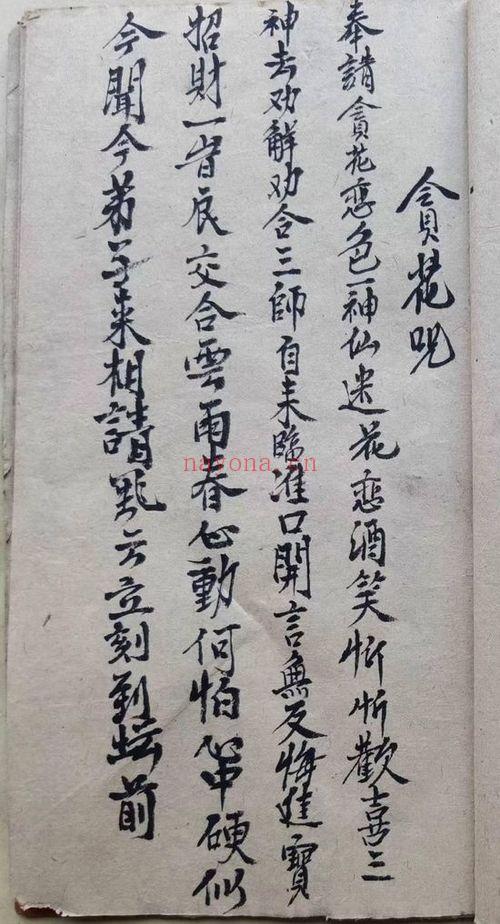 貪花呪
奉請貪花恋色神仙迷花恋酒笑忻忻歡喜三
神去劝解劝合三師自来臨准口開言無反悔進寶
招財一旹辰交合雲雨春心動何怕心中硬似
今聞今弟子来相請點云立刻到坛前
nayona.cn